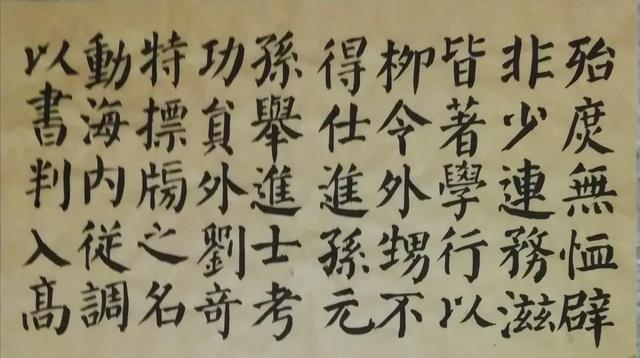 殆庶無恤辟
非少連務滋
皆著學行以
柳令外甥不
得仕進孫元
孫舉進士考
功貟外劉竒
特摽牓之名
動海內從調
以書判入髙